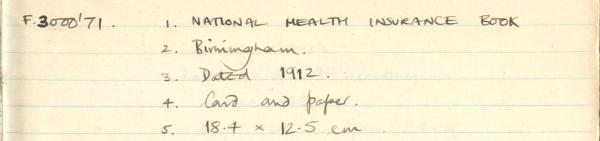 F.3000'71. 1. NATIONAL HEALTH INSURANCE BOOK
2. Birmingham.
3. Dated 1912.
4. Card and paper.
5. 18.4 x 12.5 cm